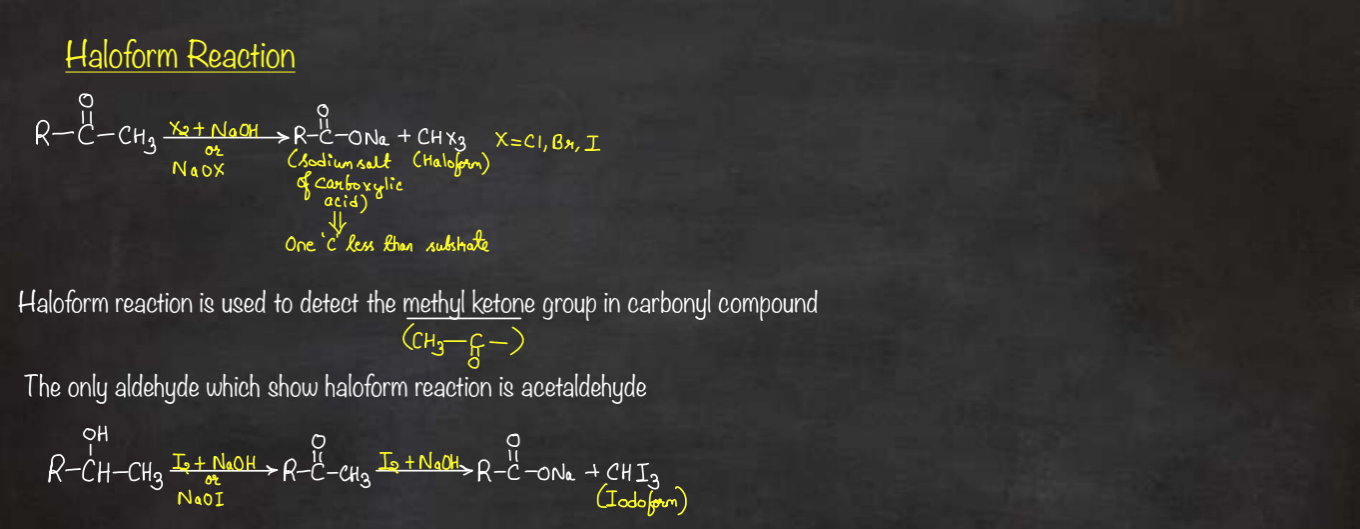 Haloform Reaction
O
R-C-CH3 X2 + NaOH or NaOX → R-C(=O)-ONa + CHX3 X=Cl, Br, I
(Sodium salt of carboxylic acid) (Haloform)
⇓
One 'C' less than substrate
Haloform reaction is used to detect the methyl ketone group in carbonyl compound
(CH3-C-)
O
The only aldehyde which show haloform reaction is acetaldehyde
OH O O
R-CH-CH3 I2 + NaOH or NaOI → R-C-CH3 I2 + NaOH → R-C-ONa + CHI3
(Iodoform)